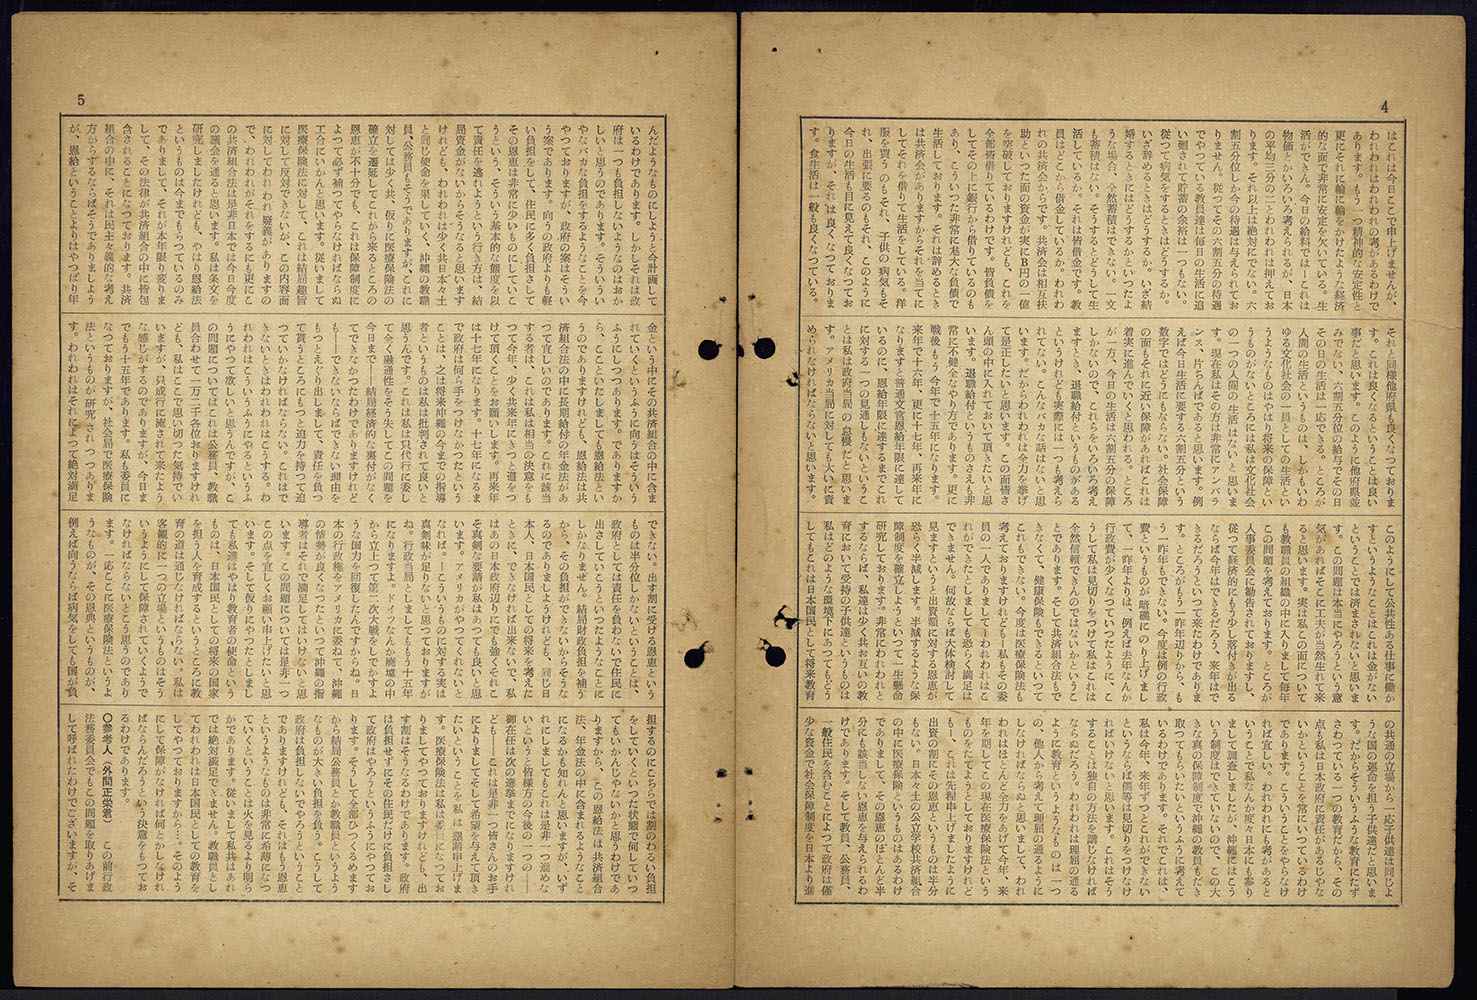 4
はこれは今日ここで申上げませんが、
われわれはわれわれの考があるわけで
あります。もう一つ精神的な安定性と
更にそれに輪に輪をかけたような経済
的な面で非常に安定を欠いている。生
活ができん。今日の給料では―これは
物価とかいろいろ考えられるが、日本
の平均三分の二とわれわれは押えてお
ります。それ以上は絶対にでない。六
割五分位しか今の待遇は与えられてお
りません。従つてその六割五分の待遇
でやつている教員達は毎日の生活に追
い廻されて貯蓄の余裕は一つもない。
従つて病気をするときはどうするか。
いざ辞めるときはどうするか。いざ結
婚するときにはどうするかといつたよ
うな場合、全然蓄積はできない。一文
も蓄積はない。そうするとどうして生
活しているか。それは皆借金です。教
員はどこから借金しているか。われわ
れの共済会からです。共済会は相互扶
助といつた面の資金が実にＢ円の一億
を突破しておりますけれども、これを
全部皆借りているわけです。皆負債を
してその上に銀行から借りているのも
あり、こういつた非常に莫大な負債で
生活しております。それは辞めるとき
は共済会がありますからそれを当てに
してそれを借りて生活をしている。洋
服を買うのもそれ、子供の病気もそ
れ、出張に要るのもそれ、このように
今日の生活も目に見えて良くなつてお
りますが、それは良くなつておりま
す。食生活は一般も良くなつている。
それと同様他府県も良くなつておりま
す。これは良くなるということは良い
事だと思います。このように他府県並
みでない、六割五分位の給与でその日
その日の生活は一応できる。ところが
人間の生活というものは、しかもいわ
ゆる文化社会の一員としての生活とい
うようなものはやはり将来の保障とい
うものがないところには私は文化社会
の一つの人間の生活はないと思いま
す。現在私はその方は非常にアンバラ
ンス、片ちんばであると思います。例
えば今日生活に要する六割五分という
数字ではどうにもならない。社会保障
の面もそれに近い保障があればこれは
着実に進んでいくと思われる。ところ
が一方、今日の生活は六割五分の保障
しかないので、これらをいろいろ考え
ますとき、退職給付というものがある
というけれども実際には一つも考えら
れてない。こんなバカな話はないと思
います。だからわれわれは全力を挙げ
て是正したいと思います。この面皆さ
ん頭の中に入れておいて頂きたいと思
います。退職給付というものさえも非
常に不健全なやり方であります。更に
戦後もう今年で十五年になります。
来年で十六年、更に十七年、再来年に
なりますと普通文官恩給年限に達して
いるのに、恩給年限に達するまでこれ
に対する一つの見通しもないというこ
とは私は政府当局の怠慢だと思いま
す。アメリカ当局に対しても大いに責
められなければならないと思います。
このようにして公共性ある仕事に働か
すというようなことはこれは金がない
ということでは済まされないと思いま
す。この問題は本当にやろうという意
気があればそこに工夫が当然生れて来
ると思います。実は私この面について
も教職員の組織の中に入りまして毎年
この問題を考えております。ところが
人事委員会に勧告されておりますし、
従つて経済的にもう少し落付きが出る
ならば今年はできるだろう、来年はで
きるだろうといつて来たわけでありま
す。ところがもう一昨年辺りから、も
う一昨年もできない。今度は例の行政
費というものが暗礁にのり上げまし
て、一昨年よりは、例えば去年なんか
行政費が少なくなつていつたように、こ
うして私は見切りをつけて私はこれは
全然信頼できんのではないかというこ
とでありまして、そして共済組合もで
きなくて、健康保険もできるといつて
これもできない。今度は医療保険法も
考えておりますけれども―私もその委
員の一人でありまして―われわれはこ
れができたとしましても恐らく満足は
できません。何故ならば大体検討して
見ますというと出資額に対する恩恵が
恐らく半減します。半減するような保
障制度を確立しようといつて一生懸命
研究しております。非常にわれわれと
しますならば、私達は少く共お互いの教
育において受持の子供達というものは
私はどのような環境下にあつてもどう
してもこれは日本国民として将来教育
の共通の立場から一応子供達は同じよ
うな国の運命を担う子供達だと思いま
す。だからそういうふうな教育にたず
さわつている一つの教育だから、その
点も私は日本政府に責任があるじやな
いかということを常にいつているわけ
であります。こういうことをやらなけ
れば宜しい。われわれにも考があると
いうことで私なんか度々日本にも参り
まして調査しましたが、沖縄にはこう
いう制度はできていないので、この大
きな真の保障制度で沖縄の教員もだき
取つてもらいたいというふうに考えて
いるわけであります。それでこれは、
私は今年、来年ずつとこれができない
というならば僕等は見切りをつけなけ
ればいけないと思います。これはそう
することは独自の方法を講じなければ
ならぬだろう。われわれは理屈の通る
ように教育というようなものは一つ
の、他人から考えて理屈の通るように
しなければならぬと思いまして、われ
われはほとんど全力をあげて今年、来
年を期してこの現在医療保険法という
ものをたてようとしておりますけれど
も―、これは先程申上げましたように
出資の割にその恩恵というものは半分
もない。日本々土の公立学校共済組合
の中に医療保険というものはあるわけ
でありまして、その恩恵のほとんど半
分にも該当しない恩恵を与えられるわ
けであります。そして教員、公務員、
一般住民を含むことによつて政府は僅
少な資金で社会保障制度を日本より進
5
んだようなものにしようと今計画して
いるわけであります。しかしそれは政
府は一つも負担しないようなのはおか
しいと思うのであります。そういうい
やなバカな負担をするようなことを今
やつておりますが、政府の案はそうい
う案であります。向うの政府よりも軽
い負担をして、住民に多く負担さして
その恩恵は非常に少いものにしていこ
うという、そういう基本的な態度を以
て責任を逃れようという行き方は、結
局資金がないからそうなると思います
けれども、われわれは少く共日本々土
と同じ使命を果していく、沖縄の教職
員、公務員もそうでありますが、これに
対しては少く共、仮りに医療保険法の
確立を遷延してこれから来るところの
恩恵が不十分でも、これは保障制度に
よつて必ず補つてやらなければならぬ
工合にいかんと思います。従いまして
医療保険法に対して、これは結局趣旨
に対して反対できないが、この内容面
に対してわれわれ疑義がありますの
で、われわれがそれをするにも更にこ
の共済組合法は是非日本では今日今度
の議会を通ると思います。私は条文を
研究しましたけれども、やはり恩給法
というものは今までもらつているのみ
でありまして、それが本年限り変りま
して、その法律が共済組合の中に皆包
含されることになつております。共済
組合の中に、それは民主々義的な考え
方からするならばそうでありましよう
が、恩給ということよりはやつぱり年
金という中にその共済組合の中に含ま
れていくというふうに向うはそういう
ふうにしております。でありますか
ら、ここといたしましても恩給法とい
うのでありますけれども、恩給法は共
済組合法の中に長期給付の年金法があ
つて宜しいのであります。これに該当
する者は、これは私は相当の決意をも
つて今年、少く共来年にきつと道をつ
けて頂くことをお願いします。再来年
は十七年になります。十七年になるま
で政府は何ら手をつけなかつたという
ことは、之は将来沖縄の今までの指導
者というものは私は批判されて良いと
思うんです。これは私は只代行に委し
て全く融通性をそう失してこの問題を
今日まで――結局経済的な裏付がなく
てできなかつたわけでありますけれど
も―できないならばできない理由を
もつとえぐり出しまして、責任を負つ
て貰うところにもつと迫力を持つて迫
つていかなければならない。これはで
きないときはわれわれはこうする。わ
れわれはこういうふうにやるというふ
うにやつて欲しいと思うんですが、こ
の問題についてはこれは公務員、教職
員合わせて一万二千名位おりますけれ
ども、私はここで思い切つた気持でい
ますが、只成行に流されて来たよう
な感じがするのであります。今年ま
でもう十五年であります。私も委員に
なつておりますが、社会局で医療保険
法というものが研究されつつありま
す。われわれはそれによつて絶対満足
できない。出す割に受ける恩恵という
ものは半分位しかないということは、
政府としては責任を負わないで住民に
出さしていこうといつたようなことに
しかなりません。結局財政負担を補う
から、その負担ができないからそうな
るのでありましようけれども、同じ日
本人、日本国民としての将来を考えた
ときに、できなければ出来ないで、私
はあの日本政府辺りにでも強くそれこ
そ真剣な要請が私はあつても良いと思
います。アメリカがやつてくれないと
なれば。―こういうものに対する実は
真剣味が足りないと思つておりますが
ね。行政当局としましてももう十五年
になりますよ。ドイツなんか廃墟の中
から立上つて第二次大戦をしでかすよ
うな国を回復したんですからね。日
本の行政権をアメリカに委ねて、沖縄
の情勢が良くなつたといつて沖縄の指
導者はそれで満足してはいけないと思
います。この問題については是非一つ
この点を宜しくお願い申上げたいと思
います。そして仮りにやつたとしまし
ても私達はやはり教育者の使命という
ものは、日本国民としての将来の国家
を担う人を育成するというところに教
育の道は通じなければならない。私は
客観的に一つの立場というものはそう
いうようにして保障されていくようで
なければならないとこう思うのであり
ます。一応ここに医療保険法というよ
うなものが、その恩典というものが、
例えば向うならば病気をしても国が負
担するのにこちらでは割のわるい負担
をしてくといつた状態で何していつ
てもいかんじやないかと思うわけであ
りますから、この恩給法は共済組合
法、年金法の中に含まれるようなこと
になるかも知れんと思いますが、いず
れにしましてもこれは是非一つ進めな
いといかんと皆様方の今後の一つの―
御在任は次の選挙までになりますけれ
ども―これは是非一つ皆さんのお手
によりましてそして希望を与えて頂き
たいということを私は懇請申上げま
す。医療保険法は私は委員になつてお
りましてやつておりますけれども、出
す割はそうなるわけであります。政府
は負担はせずにその住民だけに負担さ
して政府はやろうというふうにやつてお
ります。そうして全部ひつくるめます
から結局公務員とか教職員というよう
なものが大きい負担を負う。こうして
政府は負担しないでやろうということ
でありますけれども、それはもう恩恵
というようなものは非常に希薄になつ
ていくということは火を見るより明ら
かであります。従いまして私共はあれ
では絶対満足できません。教職員とし
てわれわれは日本国民としての教育を
してやつておりますから…。そのよう
にして保障がなければ何とかしなけれ
ばならんだろうという決意をもつてお
るわけであります。
〇参考人（外間正栄君）　この前行政
法務委員会でもこの問題を取りあげま
して呼ばれたわけでございますが、そ